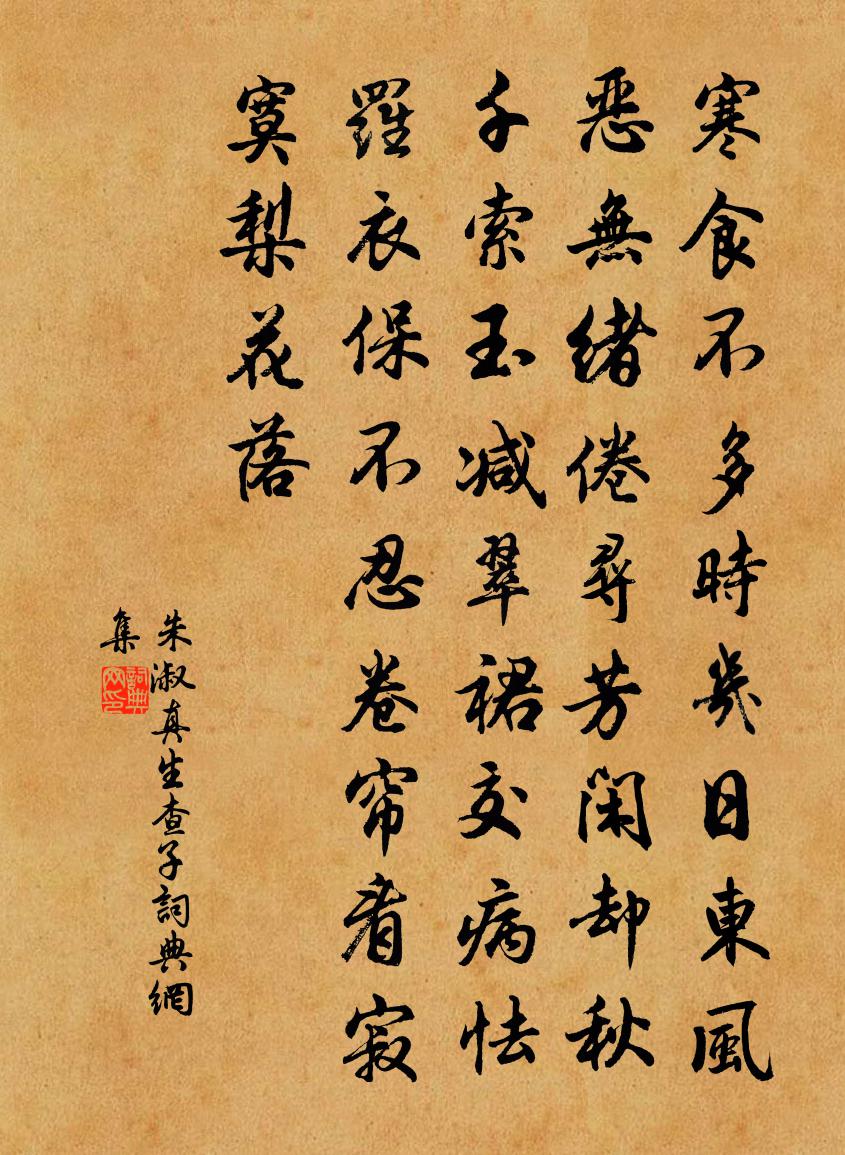 寒食不多時幾日東風
惡無緒倦尋芳閑却秋
千索玉減翠裙交病怯
羅衣保不忍卷帘看寂
寞梨花落
朱淑真生查子詞典網
集
詞典
网印